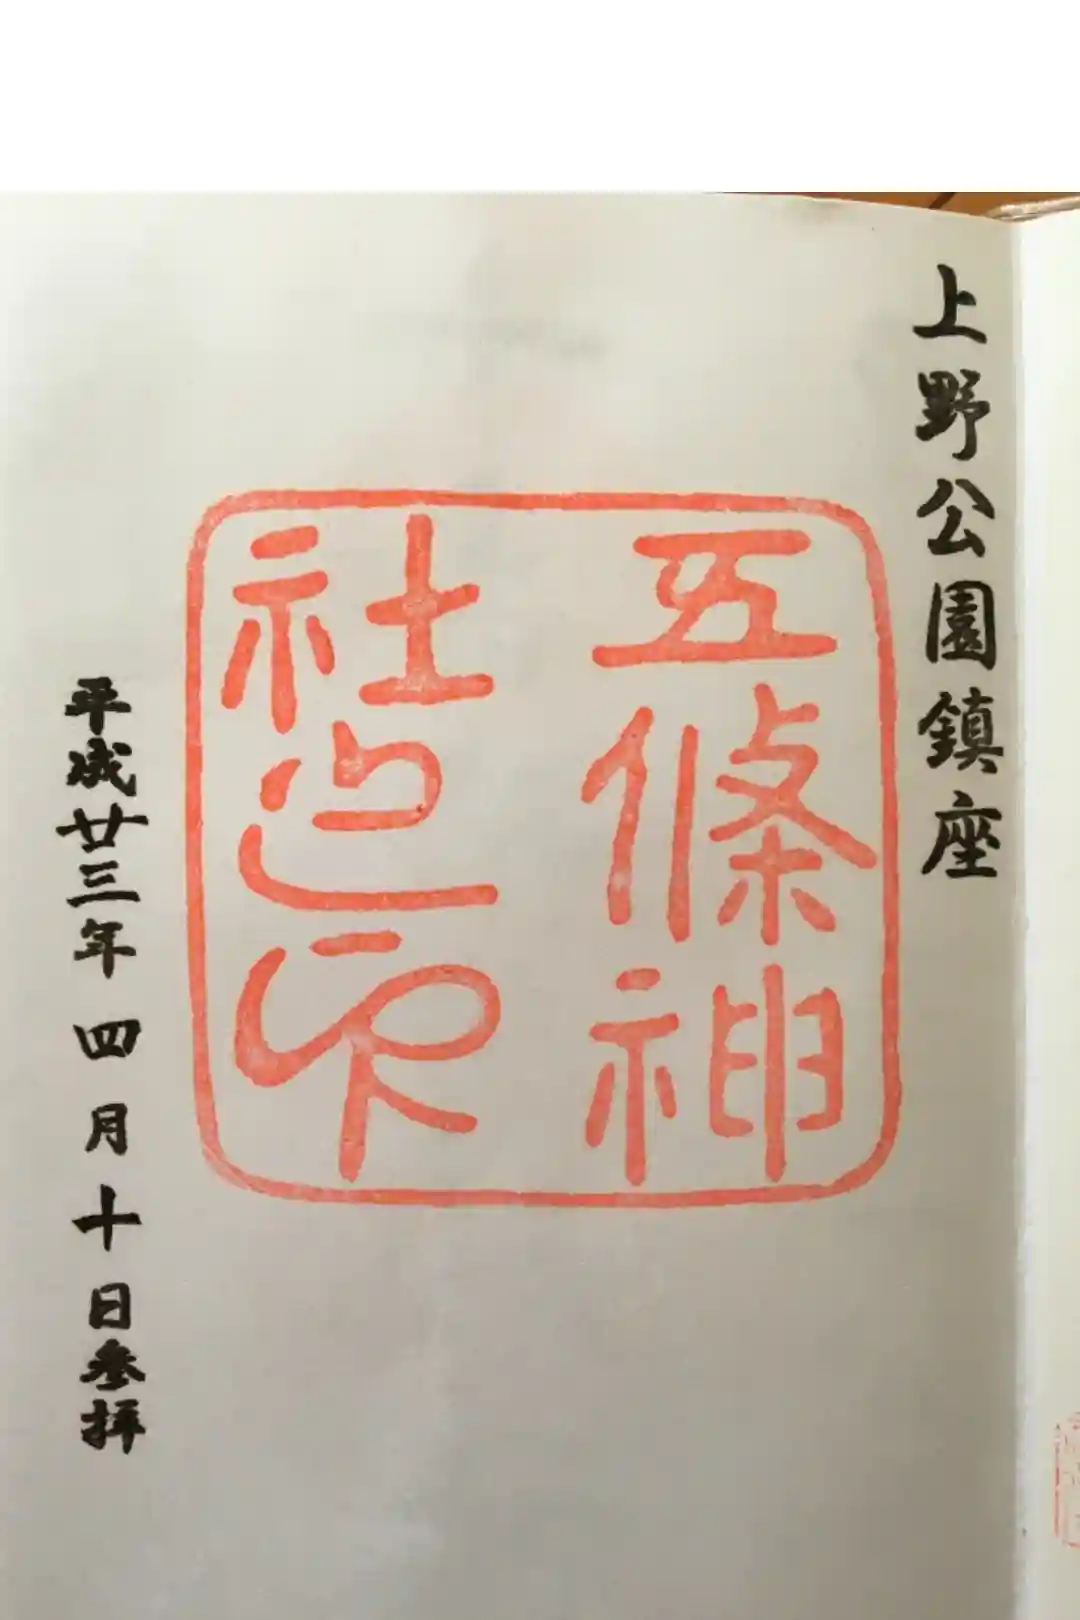 上野公園鎮座
五條神
社 印
平成廿三年四月十日参拝